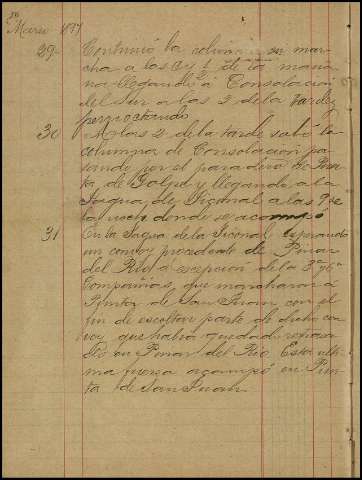 Marzo 1897
29- Continuó la columna su mar-
cha a las 6 y ½ de la maña
na llegando á Consolación
del Sur a las 2 de la tarde,
pernoctando
30 A las 2 de la tarde salió la
columna de Consolación pa
sando por el paradero de Pun
ta, de Golpe y llegando a la
de Sigonal a las 9 de
la noch donde se acampó
31 En la de la Siconal esperando
un convoy procedente de Pinar
del Rio, a escepcion de la 3ª y 6ª
Compañias, que marcharon a
Punta de San Juan con el
fin de escoltar parte de dicho con
voy que habia quedado
en Pinar del Rio. Esta ulti
ma fuerza acampó en Pun
ta de San Juan.